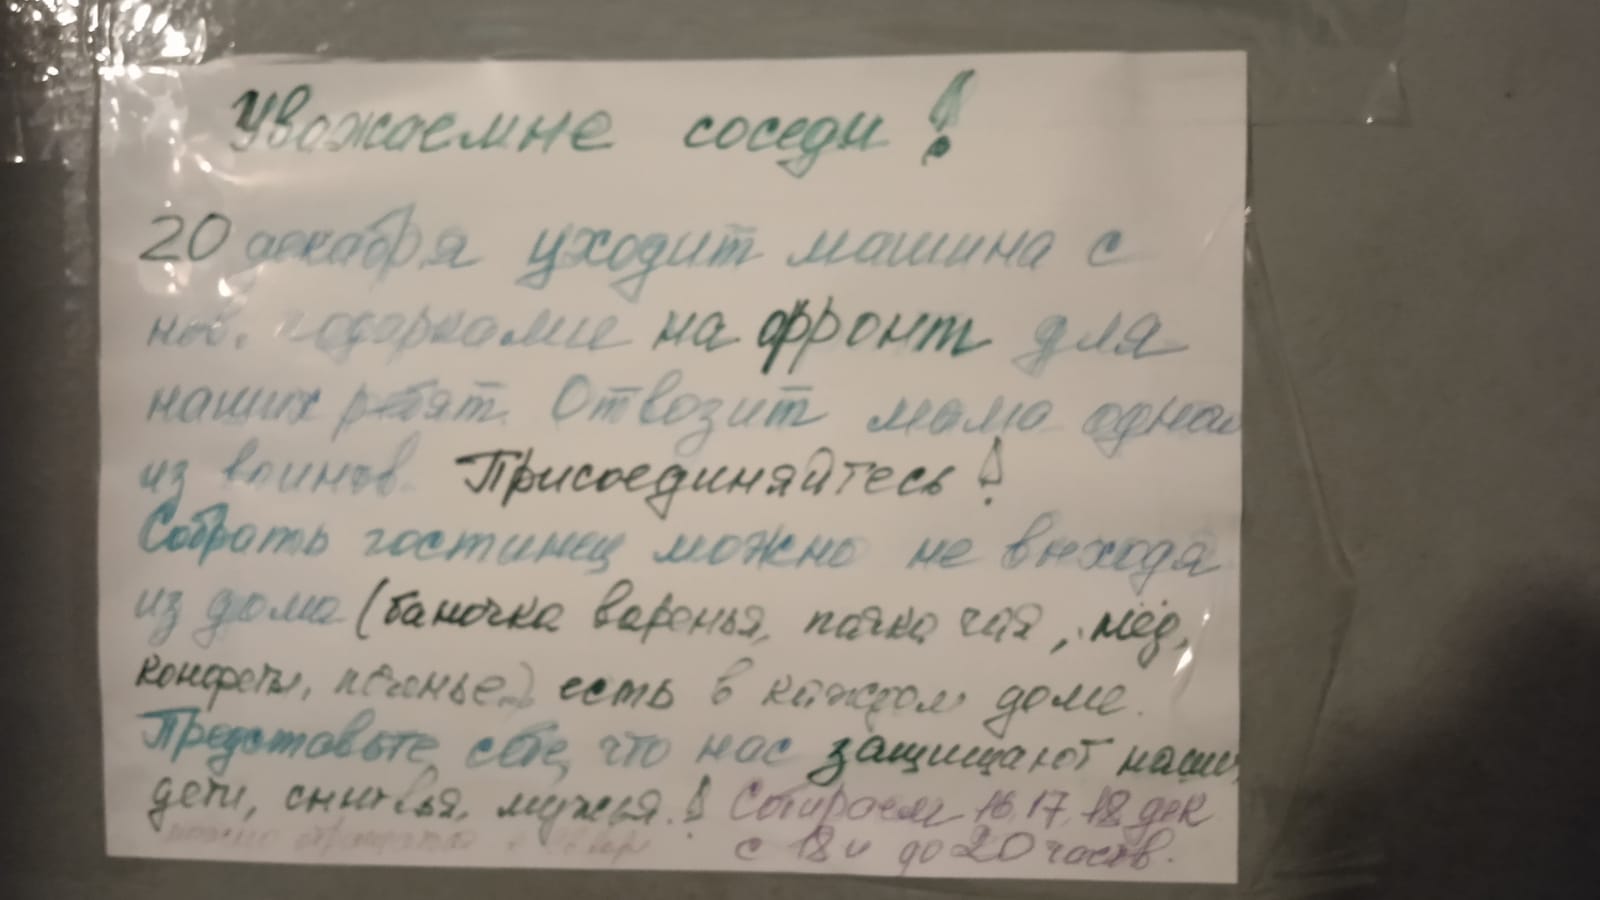 Уважаемые соседи!
20 декабря уходит машина с
нов. подарками на фронт для
наших ребят. Отвозит мама одного
из воинов. Присоединяйтесь!
Собрать гостинец можно не выходя
из дома (баночка варенья, пачка чая, мёд,
конфеты, печенье) есть в каждом доме.
Представьте себе, что нас защищают наши
дети, сыновья, мужья! Собираем 16, 17, 18 дек
с 18 ч до 20 часов.
можно